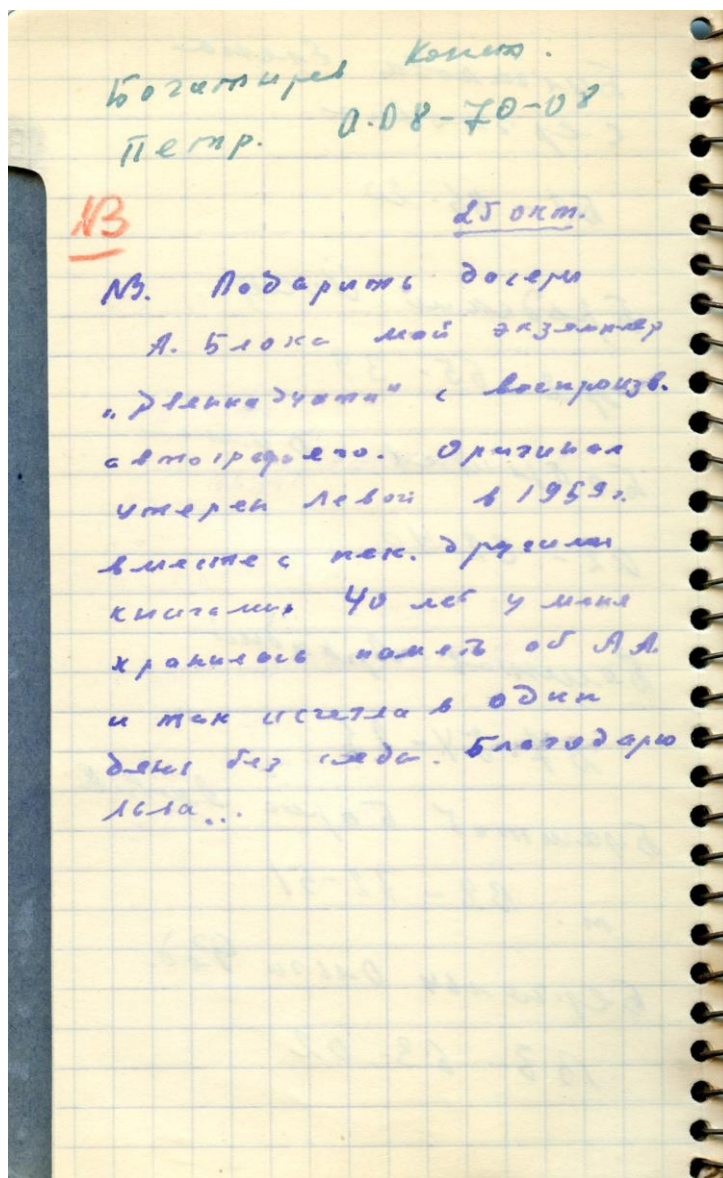 Богатырев Конст.
Петр. Д.Д 8-70-08
NB
25 окт.
NB. Подарить дочери
А. Блока мой экземпляр
„Двенадцати" с воспроизв.
автографа его. Оригинал
утерян Левой в 1959 г.
вместе с нек. другими
книгами. 40 лет у меня
хранилась память об АА.
и так исчезла в один
день без следа. Благодарю
Льва...